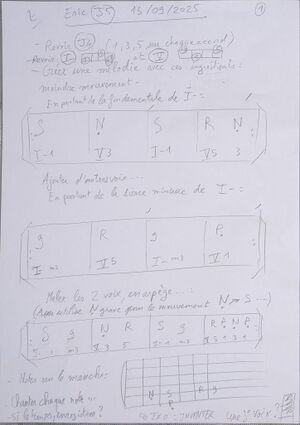 Eric J5 15/09/2025 1
- Revoir J4 (1, 3, 5 sur chaque accord)
- Revoir I- et V
- Créer une mélodie avec ces ingrédients :
moindre mouvement -
En partant de la fondamentale de I- :
S N S R N
I-1 V3 I-1 V5 3
Ajouter d'autres voix...
En partant de la tierce mineure de I- :
g R g P
I-m3 V5 I-m3 V1
Mêler les 2 voix, en arpège...
(on utilise N grave pour le mouvement N → S ...)
S g N R S g R P N P
I-1 m3 V3 5 I-1 m3 V5 1 3 1
- Notes sur le manche :
N S R g
- Chanter chaque note...
- Si le temps,
INVENTER une 3e voix ?